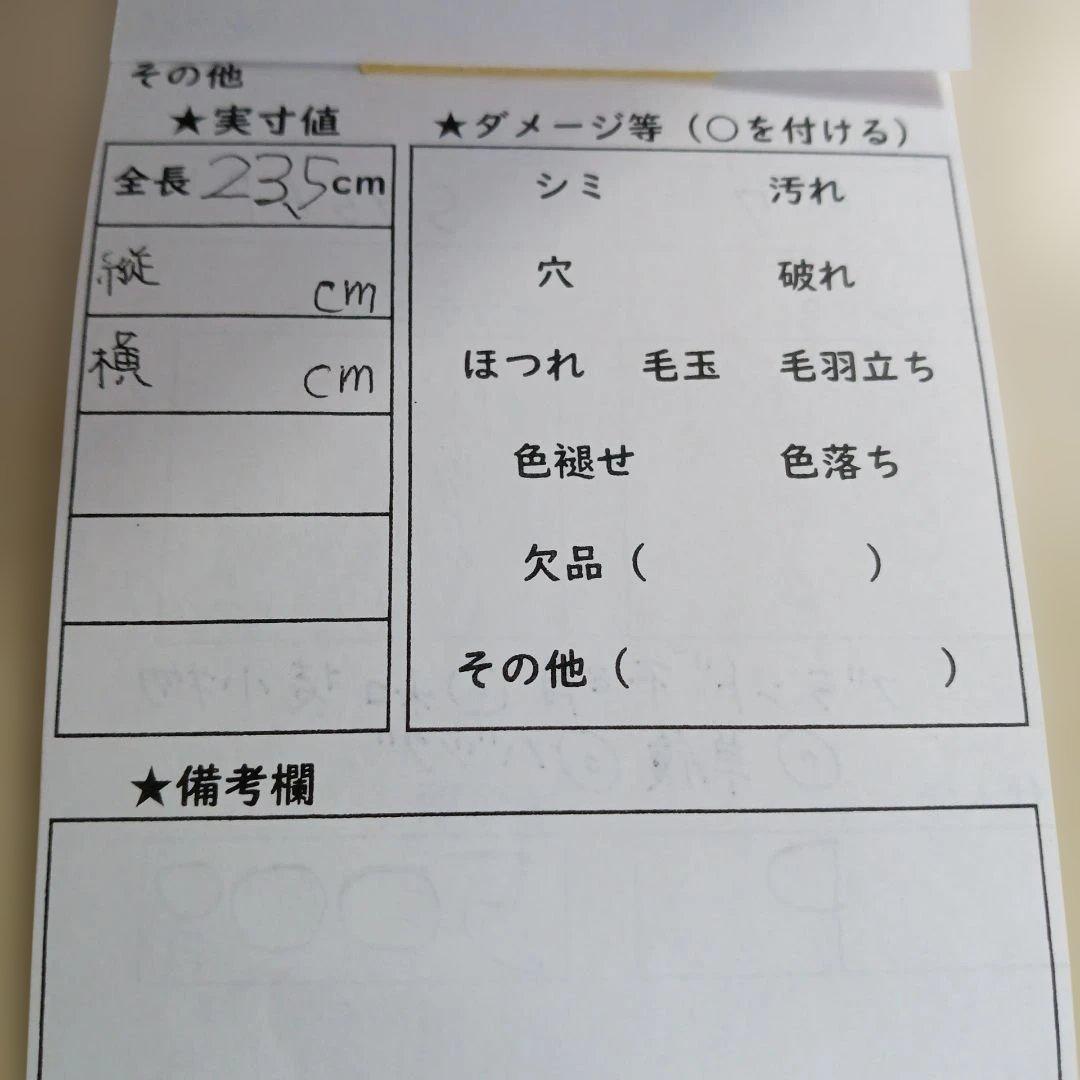 その他
★実寸値
全長 23.5cm
縦 cm
横 cm
★ダメージ等（○を付ける）
シミ 汚れ
穴 破れ
ほつれ 毛玉 毛羽立ち
色褪せ 色落ち
欠品（ ）
その他（ ）
★備考欄